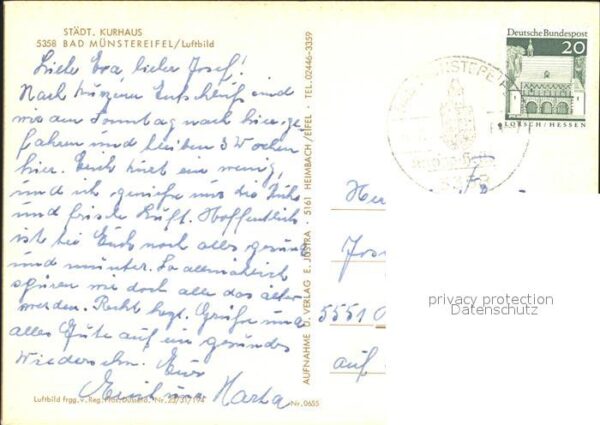 STÄDT. KURHAUS
5358 BAD MÜNSTEREIFEL/Luftbild
Liebe Eva, lieber Josef!
Nach kurzem Entschluß sind
wir am Sonntag nach hier ge
fahren und bleiben 3 Wochen
hier. Emil kurt ein wenig,
und ich genieße nur die Ruhe
und frische Luft. Hoffentlich
ist bei Euch noch alles gesund
und munter. So allmählich
spüren wir doch alle das älter
werden. Recht herzl. Grüße und
alles Gute auf ein gesundes
Wiedersehn. Eure
Emil und Marta
Luftbild frgg. v. Reg. Präs. Düsseld. Nr. 23/31/194
Nr. 0655
AUFNAHME U. VERLAG E. JUSTRA · 5161 HEIMBACH/EIFEL · TEL. 02446-3359
Deutsche Bundespost
20
LORSCH/HESSEN
Josef
5551
auf
privacy protection
Datenschutz